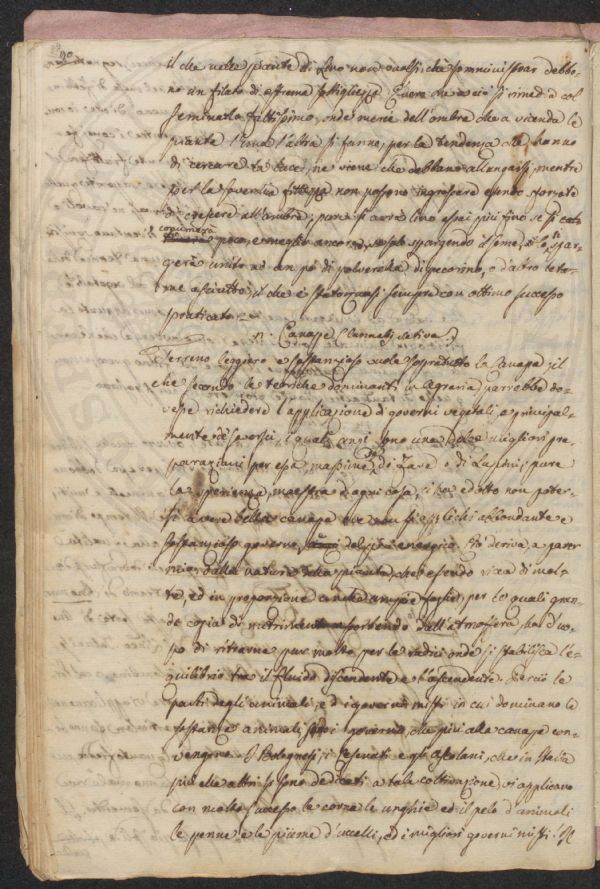 90
il che nelle piante di Lino non vuolsi, che somministrar debbo-
no un filato di estrema sottigliezza. E vero che a ciò si rimedia col
seminarlo fittissimo, onde mercè dell'ombra che a vicenda le
piante l'una l'altra si fanno, per la tendenza che hanno
di cercare la luce, ne viene che debbano allungarsi, mentre
per la soverchia fittezza non possono ingrossare essendo sforzate
di crescere all'ombra; pure si avrà lino assai più fino se si
concimerà poco, e meglio ancora, se solo spargendo il seme, si spar-
gerà unito ad un pò di polverella di pecorino, o d'altro leta-
me asciutto, il che è stato sempre con ottimo successo
praticato.
Canape (Cannabis sativa)
Terreno leggiero e sostanzioso vuole sopratutto la Canape; il
che secondo le teoriche dominanti in Agraria parrebbe do-
vesse richiedere l'applicazione di governi vegetali, e principal-
mente i sovesci, i quali anzi sono una delle migliori pre-
parazioni per essa, massime di Fave o di Lupini; pure
la sperienza, maestra d'ogni cosa, ci ha edotto non poter-
si avere bella canape ove non si applichi abbondante e
sostanzioso governo, del più energico. Ciò deriva, a parer
mio, dalla natura della pianta, che essendo ricca di mol-
te, ed in proporzione anche ampie foglie, per le quali gran-
de copia di nutrimento sortendo dall'atmosfera, ha d'uo-
po di ritrarne pure molto per le radici onde si stabilisca l'e-
quilibrio tra il fluido discendente e l'ascendente. Perciò le
parti degli animali, ed i governi misti in cui dominano le
sostanze animali sono i governi, che più alla canape con-
vengono. I Bolognesi, i Cesenati e gli Ascolani, che in Italia
più che altri si sono dedicati a tale coltivazione, vi applicano
con molto successo le corna le unghie ed il pelo d'animali
le penne e le piume d'uccelli, ed i migliori governi misti. Il